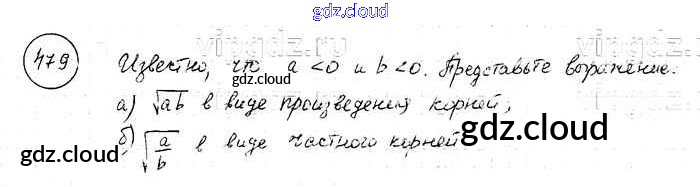 gdz.cloud
479
vipgdz.ru
vipgdz.ru
Известно, что a < 0 и b < 0. Представьте выражение:
gdz.cloud
а) √ab в виде произведения корней;
gdz.cloud
б) √a/b в виде частного корней
gdz.cloud
gdz.cloud